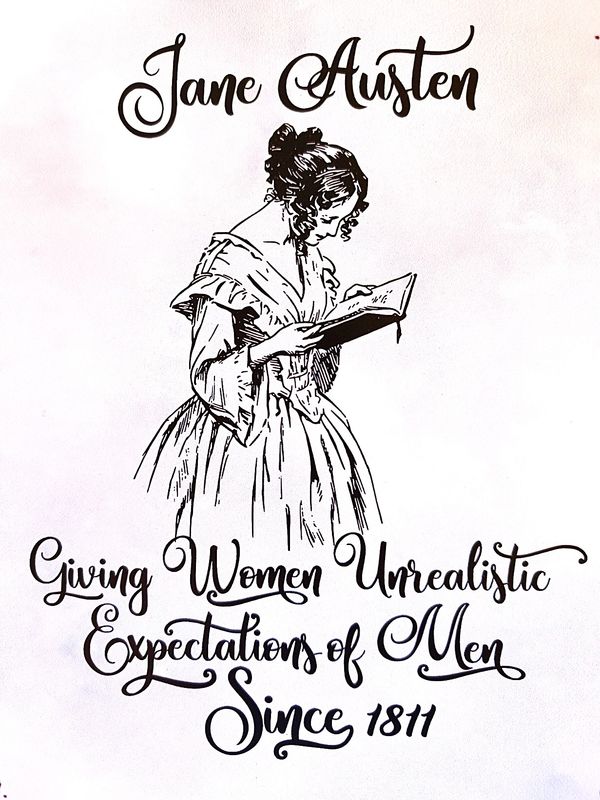 Jane Austen
Giving Women Unrealistic
Expectations of Men
Since 1811